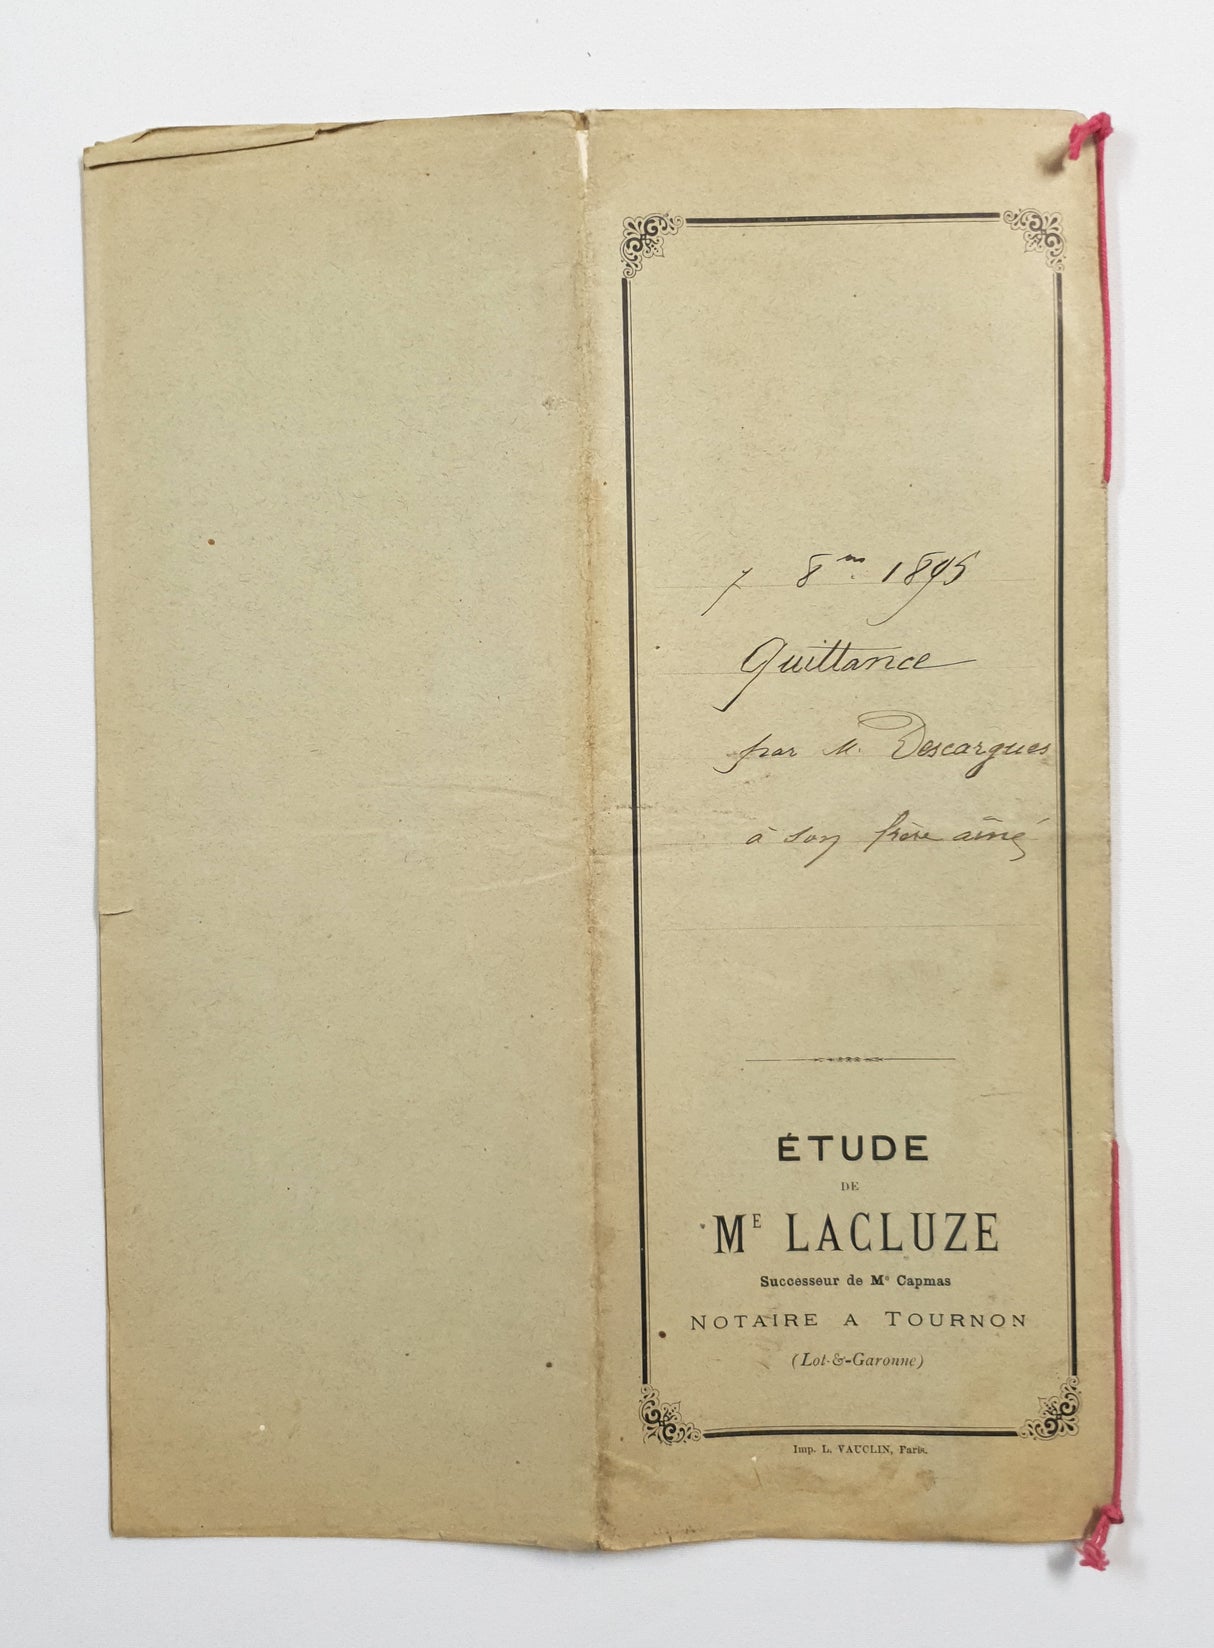 7 8bre 1895
Quittance
par M. Descargues
à son frère aîné
ÉTUDE
DE
ME LACLUZE
Successeur de Me Capmas
NOTAIRE A TOURNON
(Lot-&-Garonne)
Imp. L. VAUCLIN, Paris.